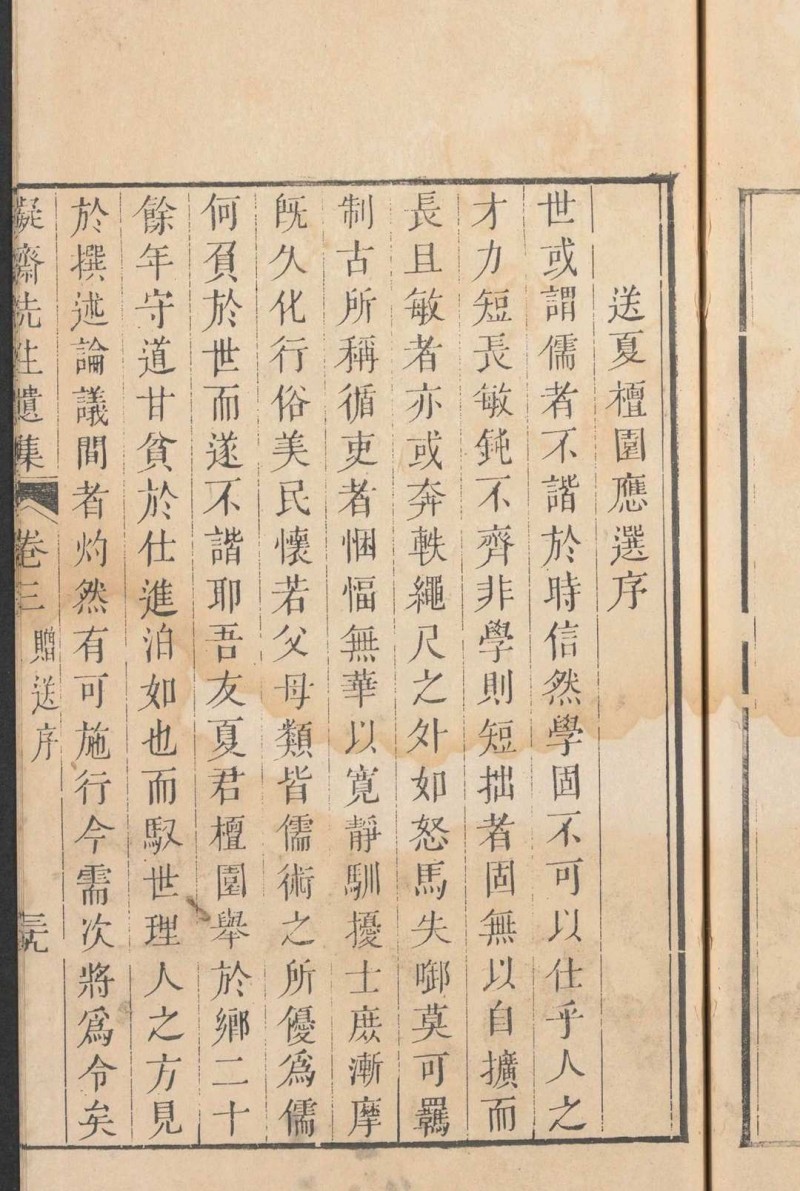 送夏檀園應選序
世或謂儒者不諧於時信然學固不可以仕乎人之
才力短長敏鈍不齊非學則短拙者固無以自擴而
長且敏者亦或奔軼繩尺之外如怒馬失啣莫可羈
制古所稱循吏者悃愊無華以寛靜馴擾士庶漸摩
旣久化行俗美民懷若父母類皆儒術之所優爲儒
何負於世而遂不諧耶吾友夏君檀園舉於鄉二十
餘年守道甘貧於仕進泊如也而馭世理人之方見
於撰述論議間者灼然有可施行今需次將爲令矣
凝齋先生遺集 卷三 贈送序 三九